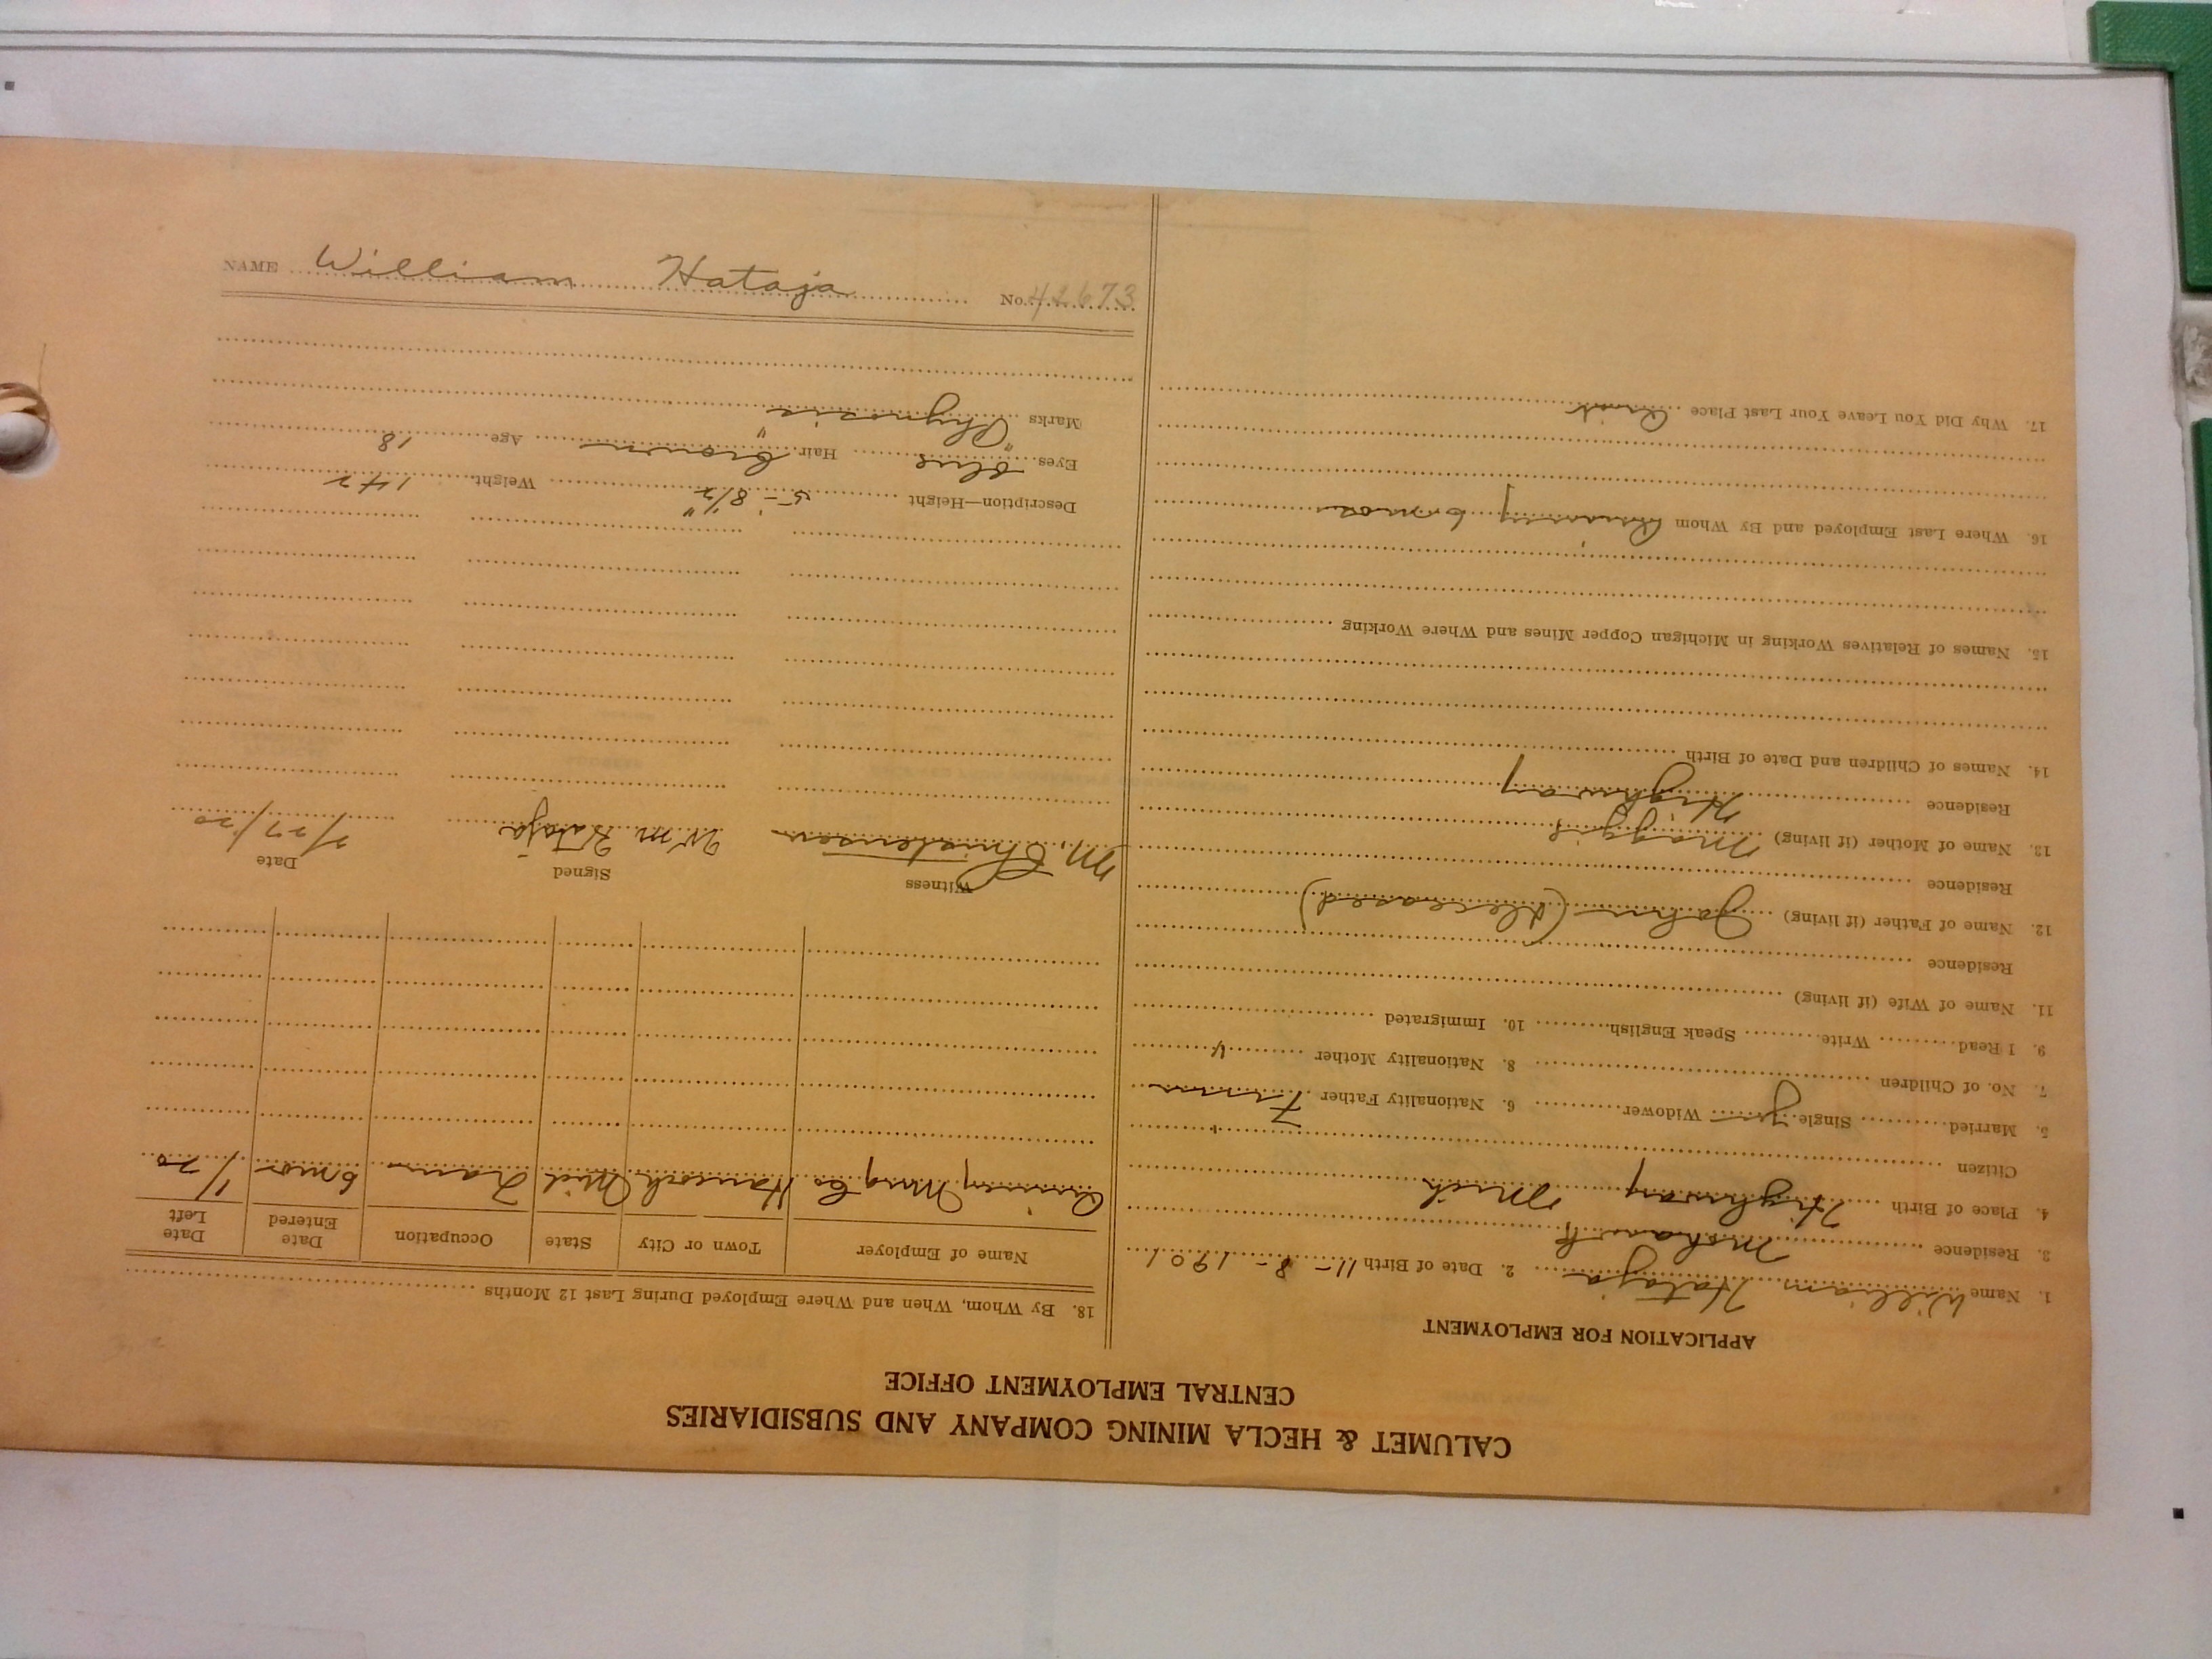 CALUMET & HECLA MINING COMPANY AND SUBSIDIARIES
CENTRAL EMPLOYMENT OFFICE
APPLICATION FOR EMPLOYMENT
1. Name William Hataja 2. Date of Birth 11-8-1901
3. Residence Mohawk
4. Place of Birth Highway Mich
Citizen
5. Married Single yes Widower 6. Nationality Father Finn
7. No. of Children 8. Nationality Mother "
9. I Read Write Speak English 10. Immigrated
11. Name of Wife (if living)
Residence
12. Name of Father (if living) John (deceased)
Residence
13. Name of Mother (if living) Maggie
Residence Highway
14. Names of Children and Date of Birth
15. Names of Relatives Working in Michigan Copper Mines and Where Working
16. Where Last Employed and By Whom Quincy 6 mos
17. Why Did You Leave Your Last Place Quit
18. By Whom, When and Where Employed During Last 12 Months
Name of Employer Town or City State Occupation Date Entered Date Left
Quincy Mng Co Hancock Mich Tram 6 mos 1/20
Witness Signed Date
M. Christensen Wm Hataja 7/27/20
Description—Height 5'-8 1/2" Weight 142
Eyes blue Hair brown Age 18
Marks
NAME William Hataja No. 42673